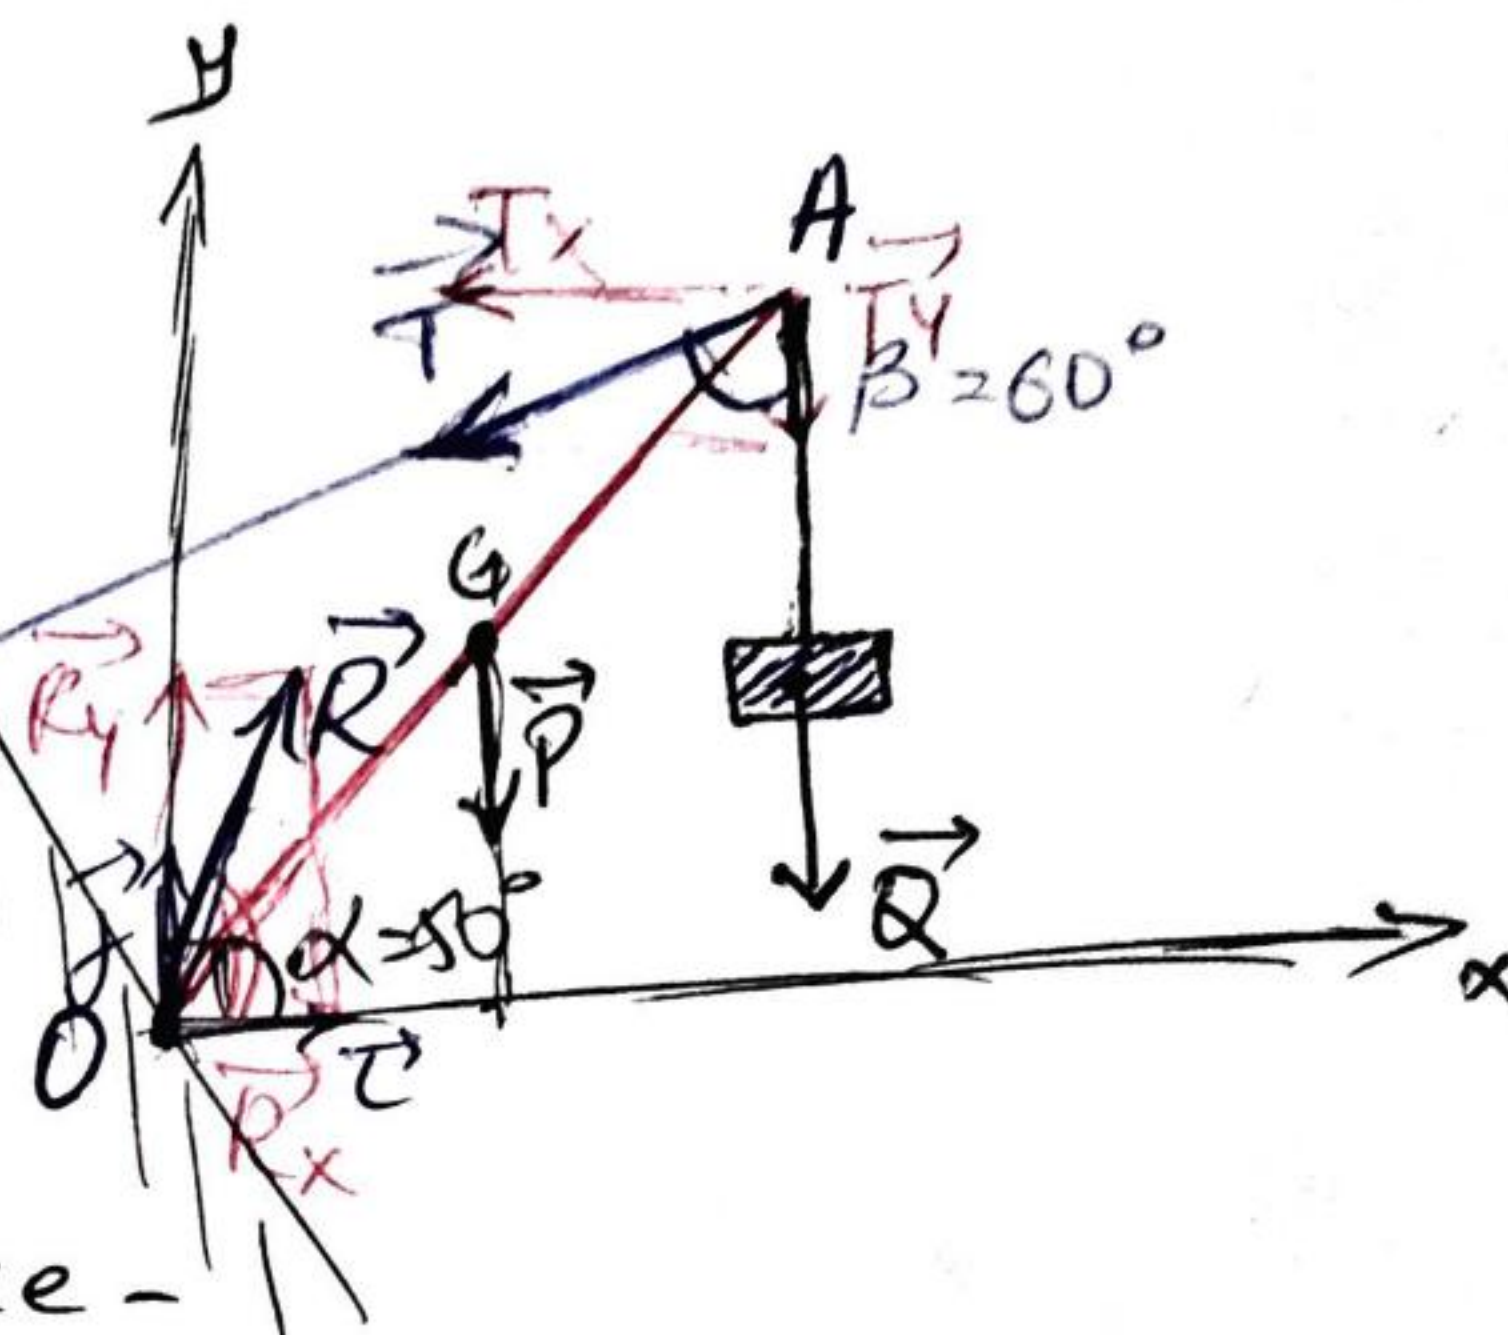 y
A
Tx
T
Ty
β = 60°
G
Ry
R
P
j
α = 50°
Q
x
O
i
Rx
e -